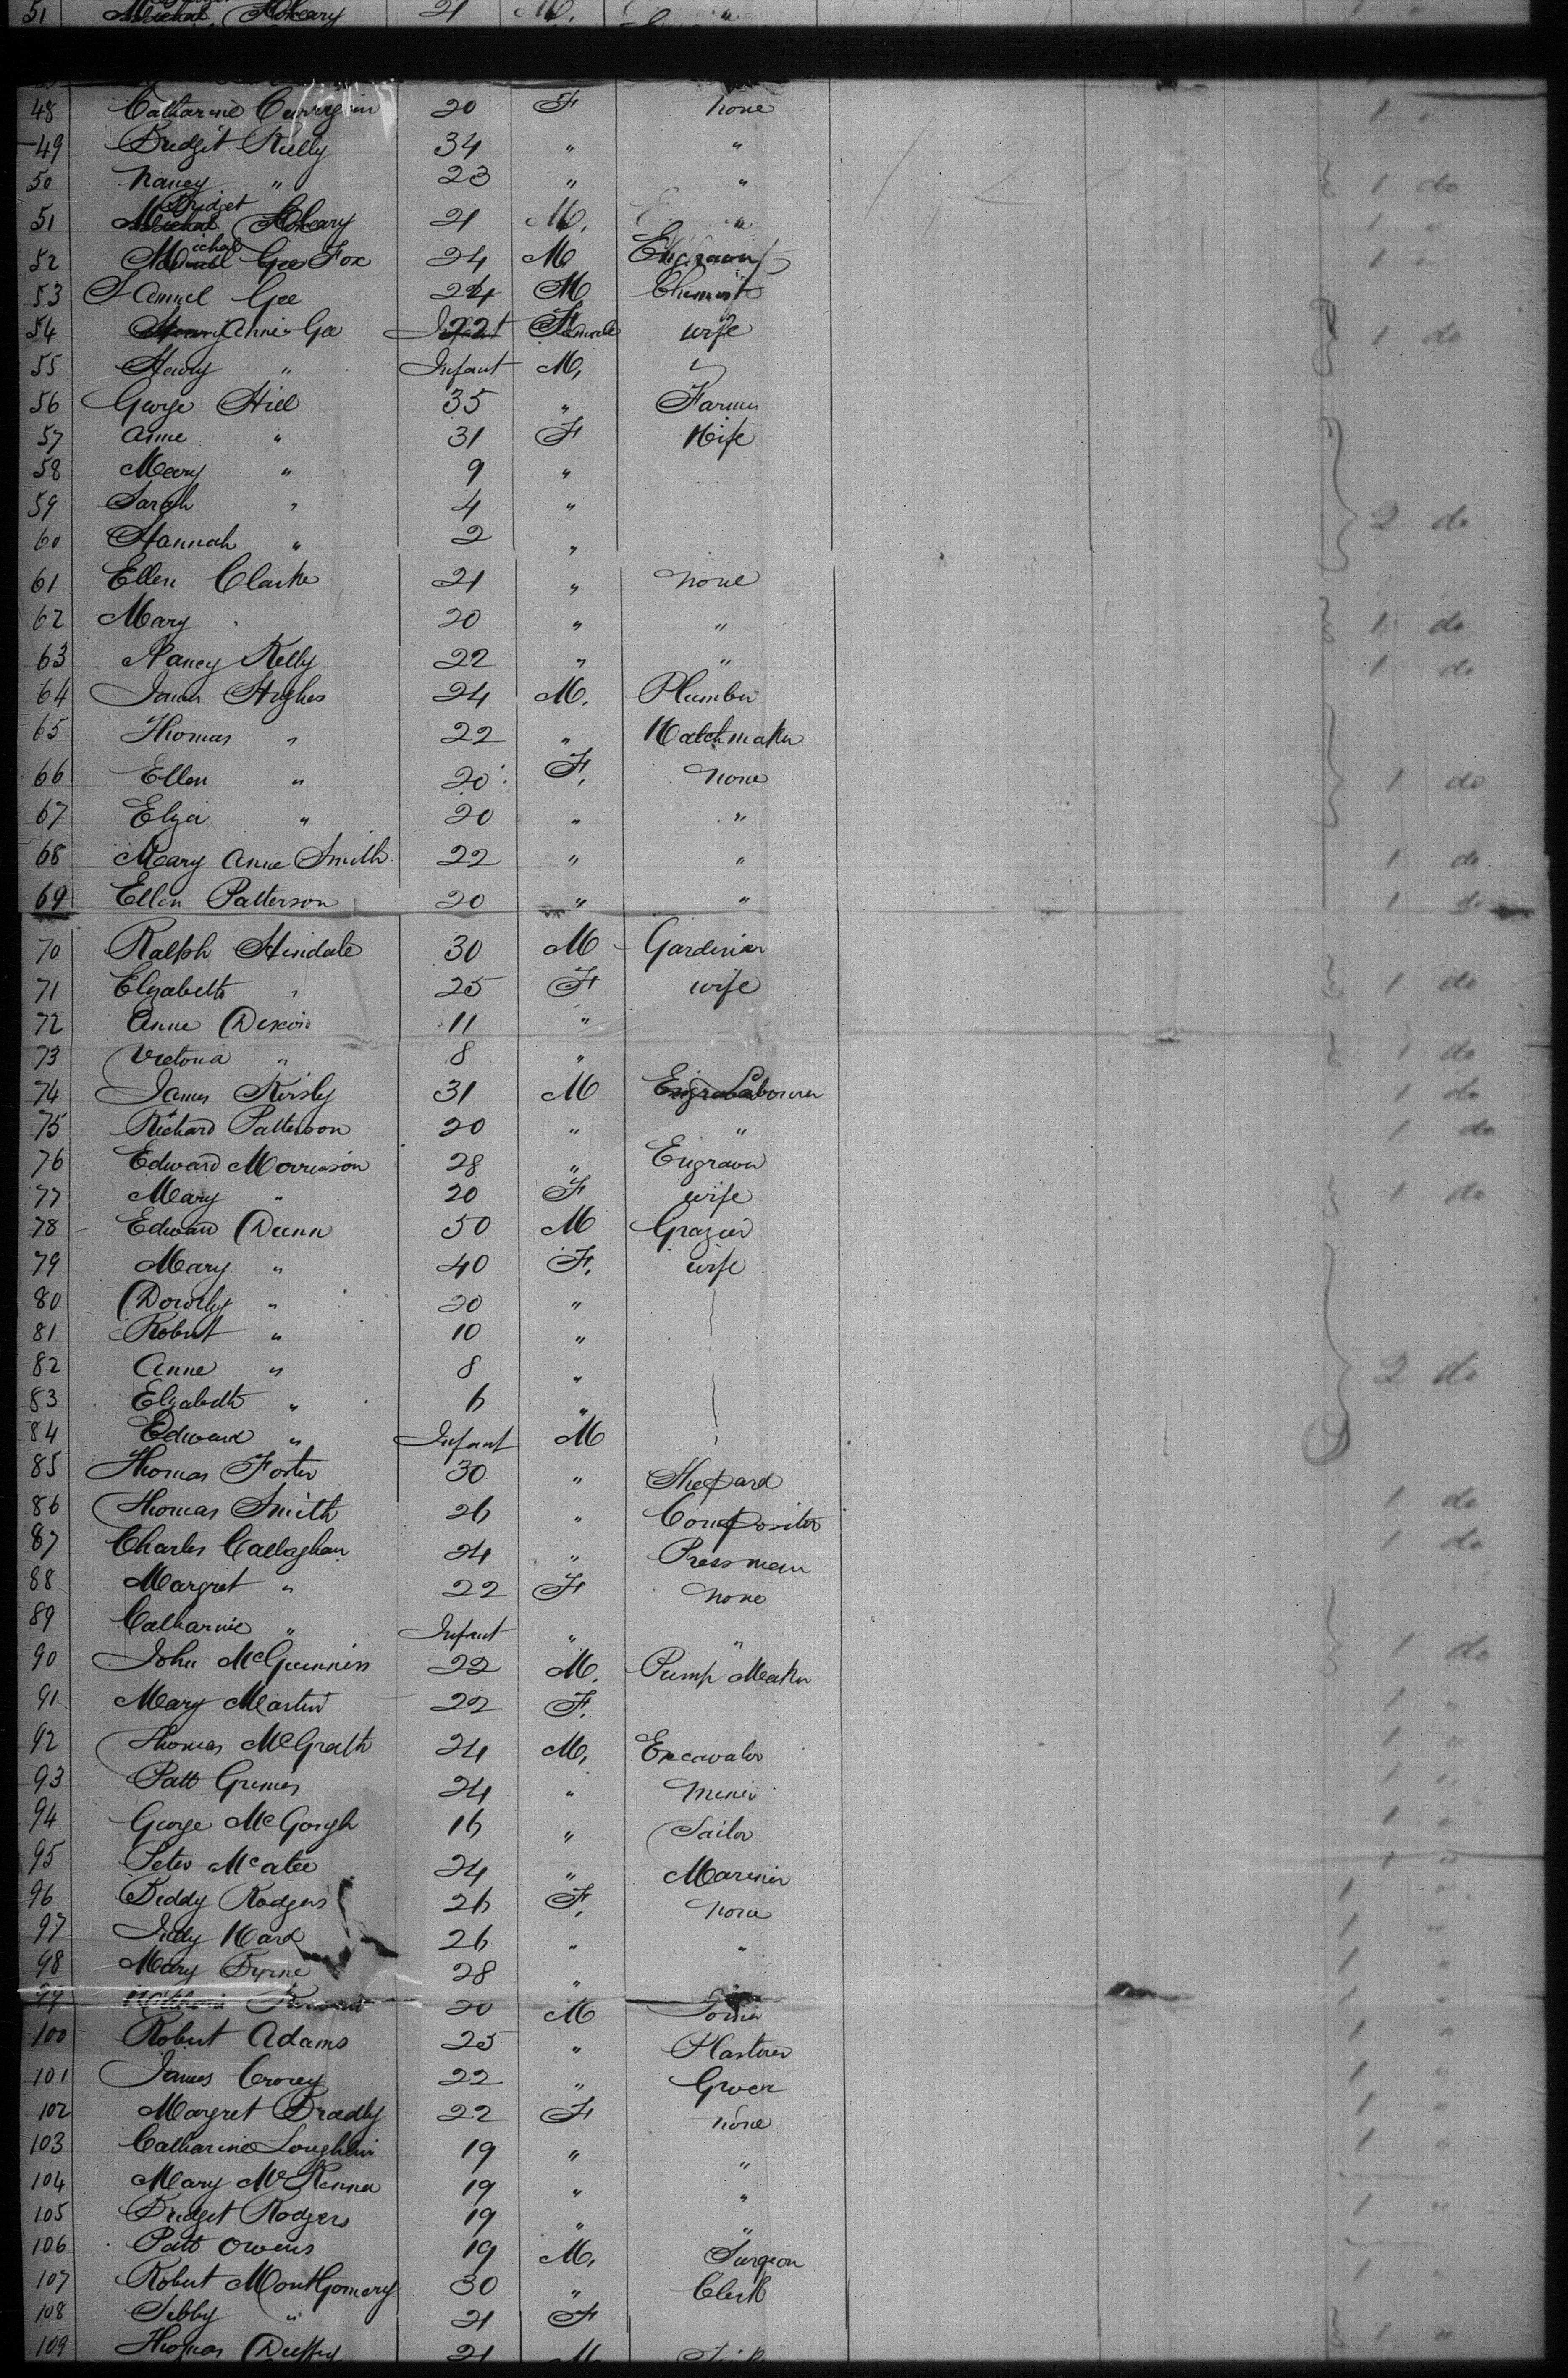 51 Michal McCleary 21 M. " 1 "
48 Catharine 20 F none 1 "
49 Bridgit Kelly 34 " "
50 Nancy " 23 " " } 1 do
51 Bridget Michal McCleary 21 M. " 1 "
52 Michal Gee Fox 24 M Engraver 1 "
53 Samuel Gee 24 M Chemist
54 Henry Annie Gee Infant 22 Female wife 1 do
55 Henry " Infant M,
56 George Hill 35 " Farmer
57 Anne " 31 F Wife
58 Mary " 9 "
59 Sarah " 4 " } 2 do
60 Hannah " 2 "
61 Ellen Clarke 21 " none
62 Mary " 20 " " } 1 do
63 Nancy Kelly 22 " " 1 do
64 James Hughes 24 M. Plumber
65 Thomas " 22 " Watchmaker
66 Ellen " 20 F. none } 1 do
67 Eliza " 20 " "
68 Mary Anne Smith 22 " " 1 do
69 Ellen Patterson 20 " " 1 do
70 Ralph Hindale 30 M Gardinier
71 Elizabeth " 25 F wife } 1 do
72 Anne Dixon 11 "
73 Victoria " 8 " } 1 do
74 James Kirsly 31 M Engra Labourer 1 do
75 Richard Patterson 20 " " 1 do
76 Edward Morrison 28 " Engraver
77 Mary " 20 F wife } 1 do
78 Edward Dunn 50 M Grazier
79 Mary " 40 F. wife
80 Dorothy " 20 "
81 Robert " 10 "
82 Anne " 8 " } 2 do
83 Elizabeth " 6 "
84 Edward " Infant M
85 Thomas Foster 30 " Shepard
86 Thomas Smith 26 " Compositor 1 do
87 Charles Callaghan 24 " Pressman 1 do
88 Margret " 22 F none
89 Catharine " Infant " " } 1 do
90 John McGuinniss 22 M. Pump Maker
91 Mary Martin 22 F. 1 "
92 Thomas McGrath 24 M, Excavator 1 "
93 Patt Grimes 24 " Miner 1 "
94 George McGough 16 " Sailor 1 "
95 Peter McAtee 24 " Mariner 1 "
96 Biddy Rodgers 26 F. none 1 "
97 Judy Ward 26 " " 1 "
98 Mary Byrne 28 " 1 "
99 20 M 1 "
100 Robert Adams 25 " Plasterer 1 "
101 James Crorey 22 " Grocer 1 "
102 Margret Bradly 22 F none 1 "
103 Catharine Loughlin 19 " " 1 "
104 Mary McKenna 19 " "
105 Bridget Rodgers 19 " " 1 "
106 Patt Owens 19 M, Surgeon
107 Robert Montgomery 30 " Clerk 1 "
108 Sibby " 21 F } 1 "
109 Thomas Duffy 21 M